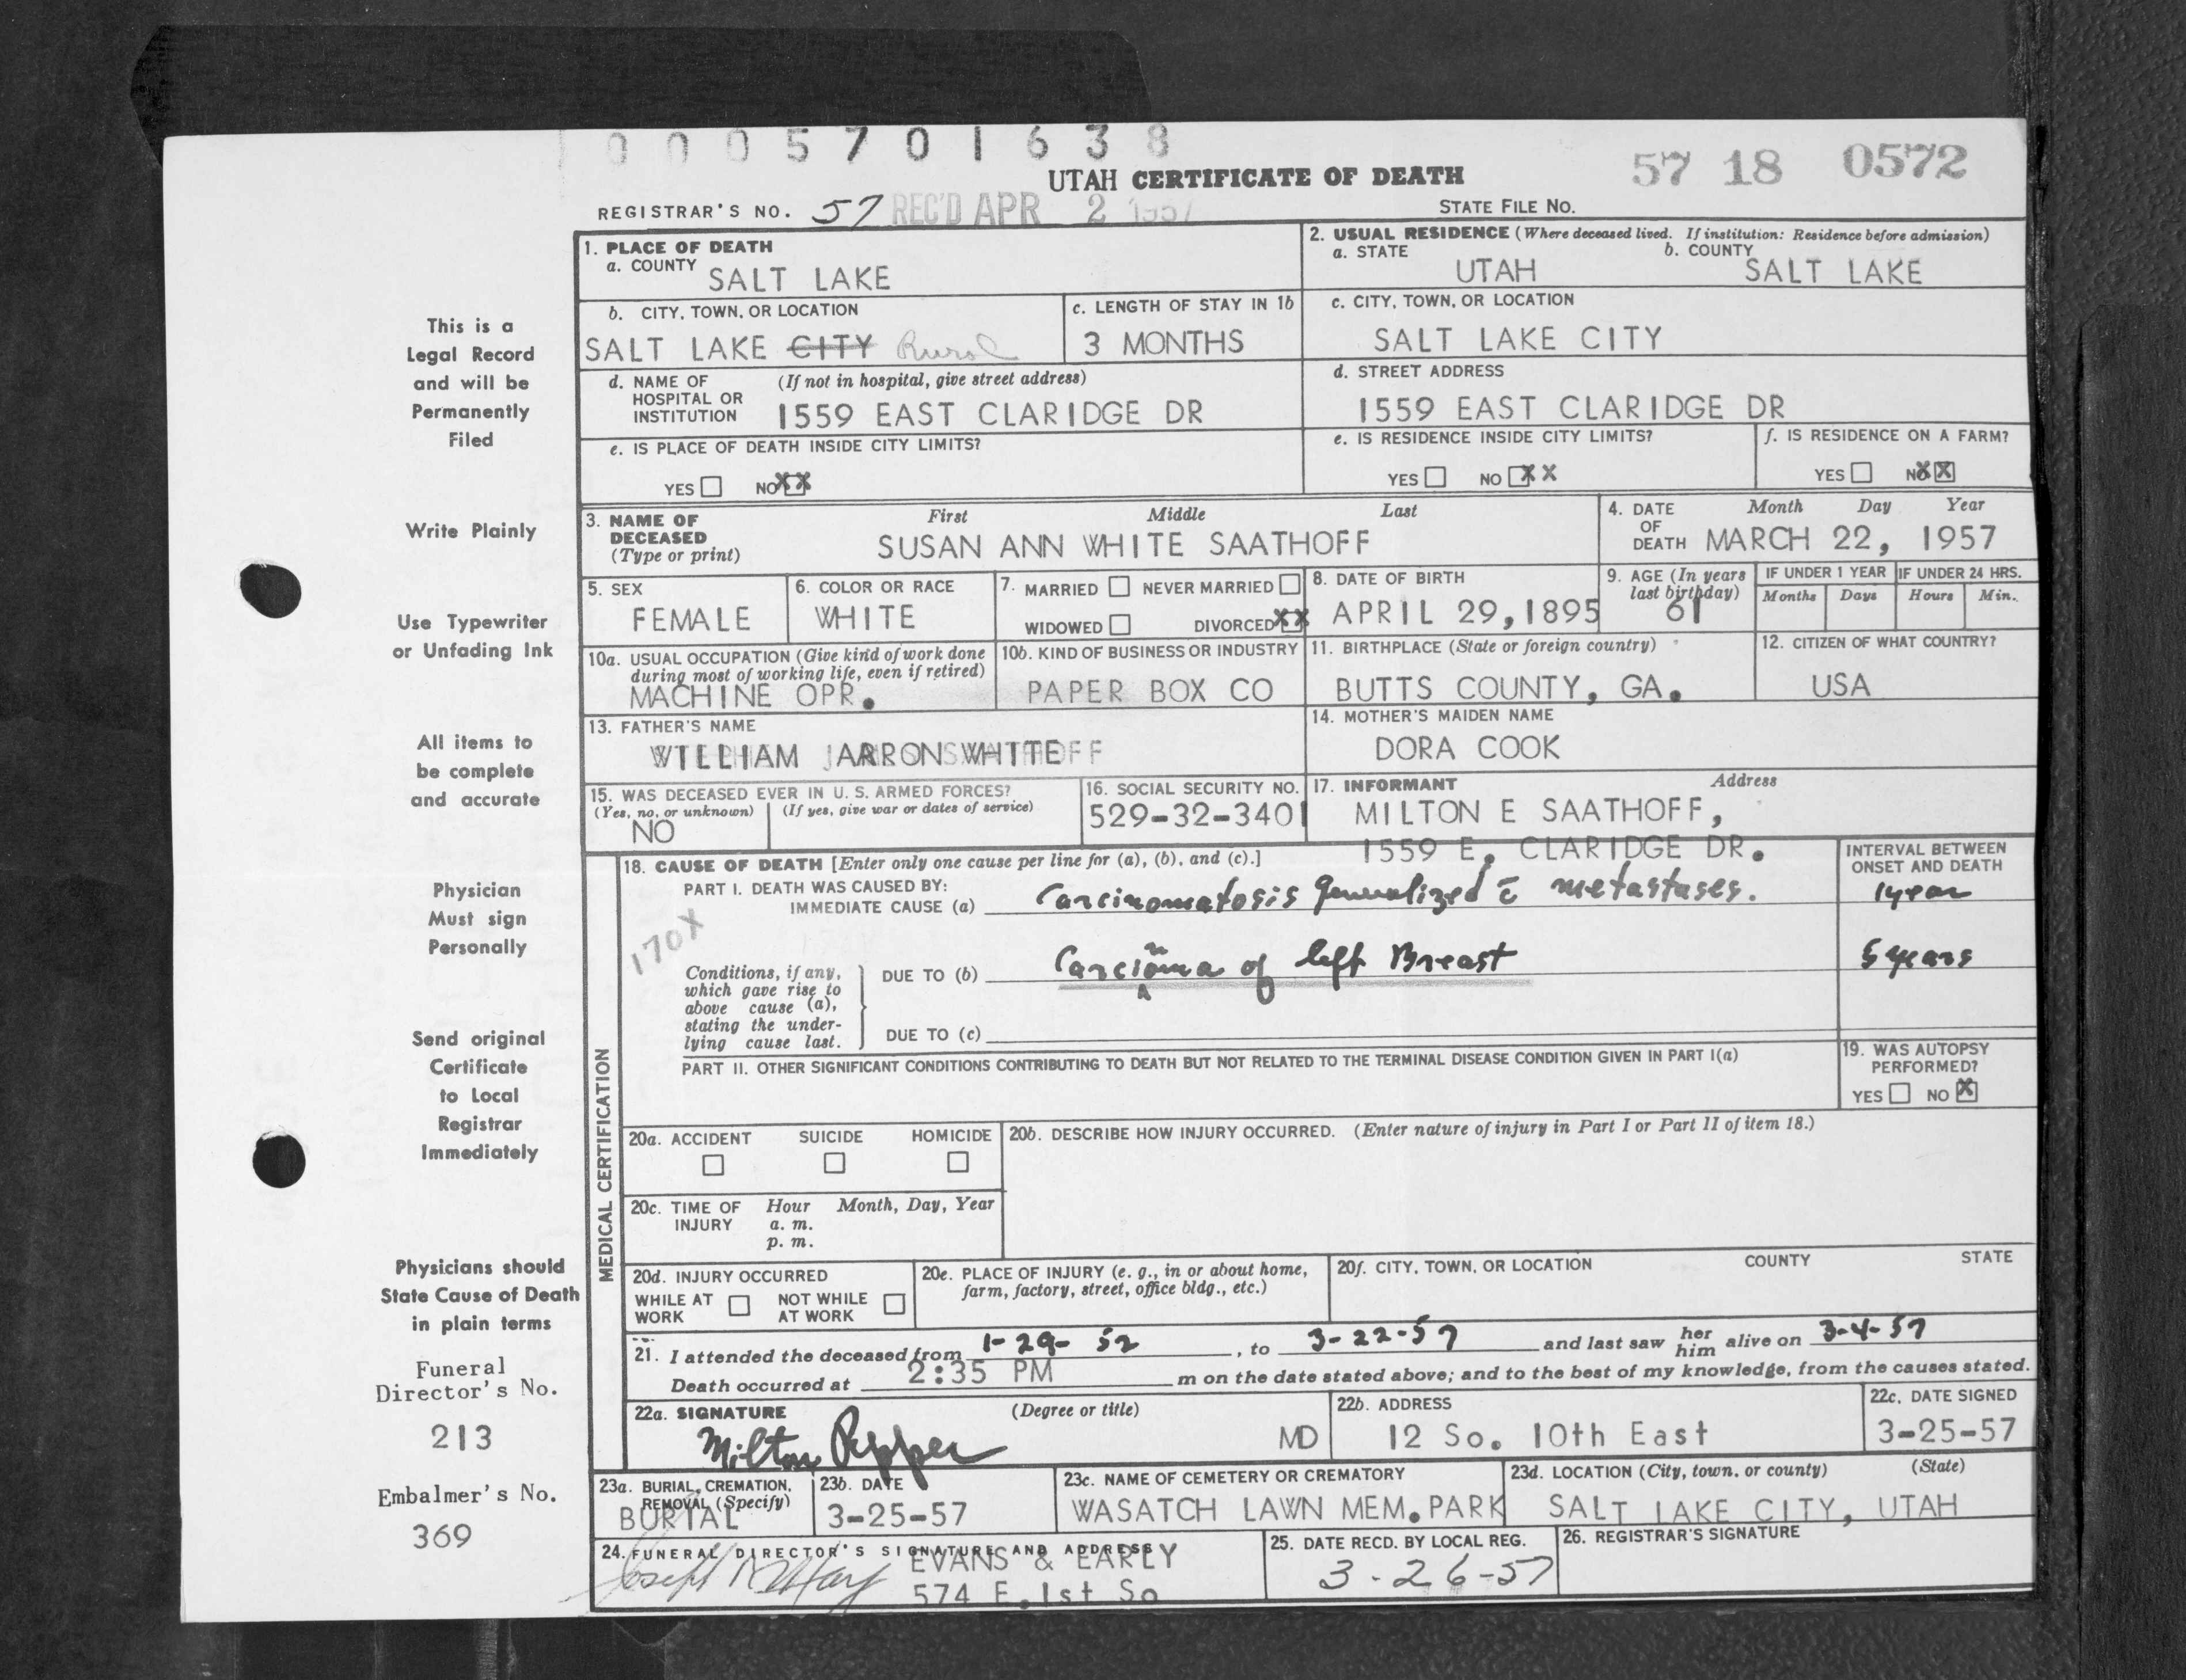 0005701638
UTAH CERTIFICATE OF DEATH
57 18 0572
REGISTRAR'S NO. 57 REC'D APR 2 1957
STATE FILE NO.
1. PLACE OF DEATH
a. COUNTY SALT LAKE
2. USUAL RESIDENCE (Where deceased lived. If institution: Residence before admission)
a. STATE UTAH b. COUNTY SALT LAKE
b. CITY, TOWN, OR LOCATION
SALT LAKE CITY Rural
c. LENGTH OF STAY IN 1b
3 MONTHS
c. CITY, TOWN, OR LOCATION
SALT LAKE CITY
d. NAME OF HOSPITAL OR INSTITUTION (If not in hospital, give street address)
1559 EAST CLARIDGE DR
d. STREET ADDRESS
1559 EAST CLARIDGE DR
e. IS PLACE OF DEATH INSIDE CITY LIMITS?
YES NO XX
e. IS RESIDENCE INSIDE CITY LIMITS?
YES NO XX
f. IS RESIDENCE ON A FARM?
YES NO XX
3. NAME OF DECEASED (Type or print)
First Middle Last
SUSAN ANN WHITE SAATHOFF
4. DATE OF DEATH Month Day Year
MARCH 22, 1957
5. SEX
FEMALE
6. COLOR OR RACE
WHITE
7. MARRIED NEVER MARRIED
WIDOWED DIVORCED XX
8. DATE OF BIRTH
APRIL 29, 1895
9. AGE (In years last birthday)
61
IF UNDER 1 YEAR
Months Days
IF UNDER 24 HRS.
Hours Min.
10a. USUAL OCCUPATION (Give kind of work done during most of working life, even if retired)
MACHINE OPR.
10b. KIND OF BUSINESS OR INDUSTRY
PAPER BOX CO
11. BIRTHPLACE (State or foreign country)
BUTTS COUNTY, GA.
12. CITIZEN OF WHAT COUNTRY?
USA
13. FATHER'S NAME
WILLIAM ARRON WHITE
14. MOTHER'S MAIDEN NAME
DORA COOK
15. WAS DECEASED EVER IN U. S. ARMED FORCES?
(Yes, no, or unknown) (If yes, give war or dates of service)
NO
16. SOCIAL SECURITY NO.
529-32-3401
17. INFORMANT Address
MILTON E SAATHOFF,
1559 E. CLARIDGE DR.
MEDICAL CERTIFICATION
18. CAUSE OF DEATH [Enter only one cause per line for (a), (b), and (c).]
INTERVAL BETWEEN ONSET AND DEATH
PART I. DEATH WAS CAUSED BY:
IMMEDIATE CAUSE (a) Carcinomatosis generalized c̄ metastases. 1 year
170X
Conditions, if any, which gave rise to above cause (a), stating the underlying cause last.
DUE TO (b) Carcinoma of left Breast 5 years
DUE TO (c)
PART II. OTHER SIGNIFICANT CONDITIONS CONTRIBUTING TO DEATH BUT NOT RELATED TO THE TERMINAL DISEASE CONDITION GIVEN IN PART I(a)
19. WAS AUTOPSY PERFORMED?
YES NO X
20a. ACCIDENT SUICIDE HOMICIDE
20b. DESCRIBE HOW INJURY OCCURRED. (Enter nature of injury in Part I or Part II of item 18.)
20c. TIME OF INJURY Hour Month, Day, Year
a. m.
p. m.
20d. INJURY OCCURRED
WHILE AT WORK NOT WHILE AT WORK
20e. PLACE OF INJURY (e. g., in or about home, farm, factory, street, office bldg., etc.)
20f. CITY, TOWN, OR LOCATION COUNTY STATE
21. I attended the deceased from 1-29-52, to 3-22-57 and last saw her him alive on 3-4-57
Death occurred at 2:35 PM m on the date stated above; and to the best of my knowledge, from the causes stated.
22a. SIGNATURE (Degree or title)
Milton Pepper MD
22b. ADDRESS
12 So. 10th East
22c. DATE SIGNED
3-25-57
23a. BURIAL, CREMATION, REMOVAL (Specify)
BURIAL
23b. DATE
3-25-57
23c. NAME OF CEMETERY OR CREMATORY
WASATCH LAWN MEM. PARK
23d. LOCATION (City, town, or county) (State)
SALT LAKE CITY, UTAH
24. FUNERAL DIRECTOR'S SIGNATURE AND ADDRESS
EVANS & EARLY
574 E. 1st So
25. DATE RECD. BY LOCAL REG.
3-26-57
26. REGISTRAR'S SIGNATURE
This is a
Legal Record
and will be
Permanently
Filed
Write Plainly
Use Typewriter
or Unfading Ink
All items to
be complete
and accurate
Physician
Must sign
Personally
Send original
Certificate
to Local
Registrar
Immediately
Physicians should
State Cause of Death
in plain terms
Funeral
Director's No.
213
Embalmer's No.
369